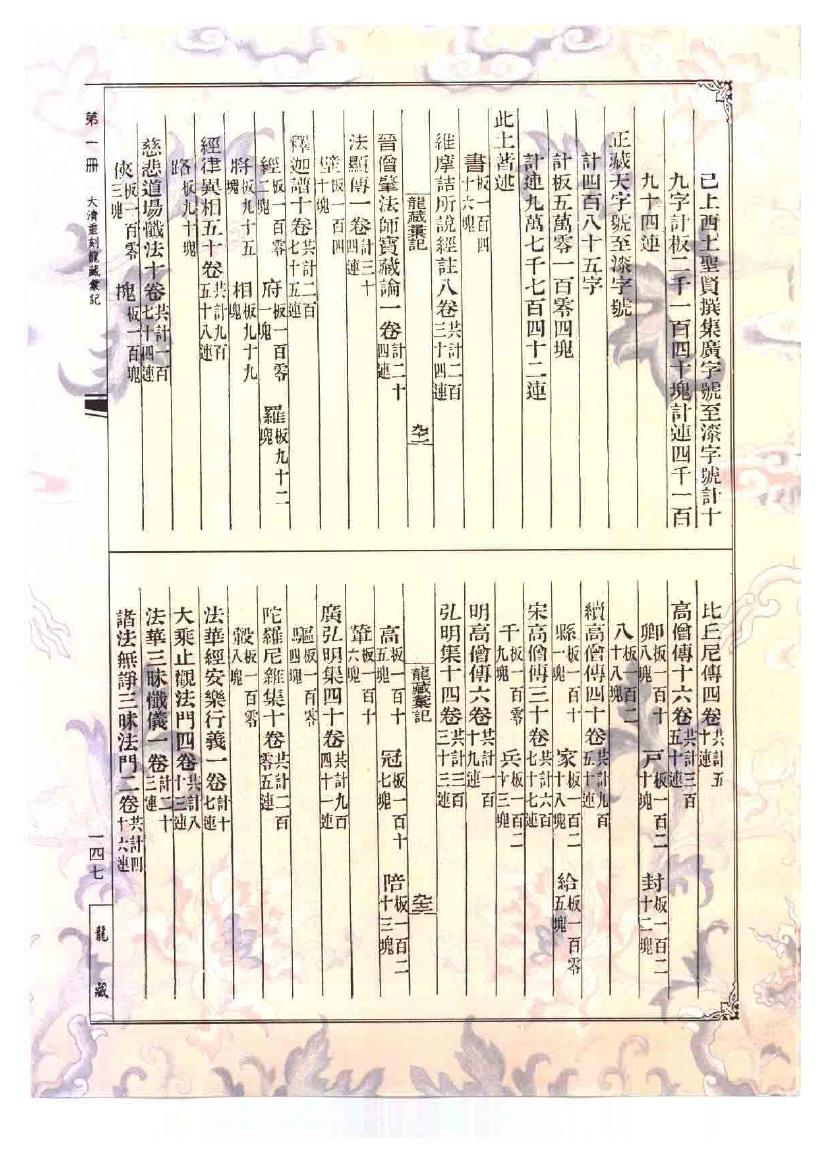 已上西土聖賢撰集廣字號至漆字號計十
九字計板二千一百四十塊計連四千一百
九十四連
正藏天字號至漆字號
計四百八十五字
計板五萬零一百零四塊
計連九萬七千七百四十二連
此土著述
書板一百四十六塊
維摩詰所說經註八卷共計二百三十四連
龍藏彙記
晉僧肇法師寶藏論一卷計二十四連
法顯傳一卷計三十四連
壁板一百四十塊
釋迦譜十卷共計二百七十五連
經板一百零二塊 府板一百零塊 羅板九十二塊
將板九十五塊 相板九十九塊
經律異相五十卷共計九百五十八連
路板九十塊
慈悲道場懺法十卷共計一百七十四連
俠板一百零三塊 槐板一百塊
比丘尼傳四卷共計五十連
高僧傳十六卷共計三百五十連
卿板一百十八塊 戶板一百二十塊 封板一百二十二塊
八板一百二十八塊
續高僧傳四十卷共計九百五十連
縣板一百十一塊 家板一百二十八塊 給板一百零五塊
宋高僧傳三十卷共計六百七十七連
千板一百十九塊 兵板一百二十三塊
明高僧傳六卷共計一百十九連
弘明集十四卷共計三百三十三連
龍藏彙記
高板一百十五塊 冠板一百十七塊 陪板一百二十三塊
輦板一百十六塊
廣弘明集四十卷共計九百四十一連
驅板一百零四塊
陀羅尼雜集十卷共計二百零五連
轂板一百零八塊
法華經安樂行義一卷計十七連
大乘止觀法門四卷共計八十三連
法華三昧懺儀一卷計二十三連
諸法無諍三昧法門二卷共計四十六連
第一冊 大清重刻龍藏彙記
一四七
龍藏